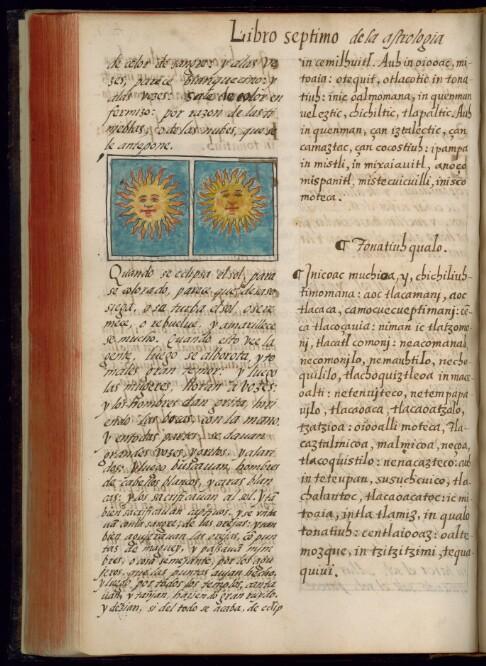 Libro septimo de la astrologia
de color de sangre: y a las ve
zes, parece blanquezino: y
a las vezes: sale de color en
fermizo: por razon de las ti
nieblas, o de las nubes, que se
le anteponen.
Quando se eclipsa el sol, para
se colorado, parece que desaso
siega, o se turba el sol, o se re
mece, o rebuelue: y amarillece
se mucho. Quando esto vee la
gente, luego se alborota, y to
males gran temor: y luego
las mugeres, lloran a vozes:
y los hombres dan grita, hiri
endo las bocas, con la mano,
y en todas partes, se dauan
grandes vozes, y gritos, y alari
dos: y luego buscauan, hombres
de cabellos blancos, y caras blan
cas: y los sacrificauan al sol, y ta
bien sacrificauan captiuos, y se vnta
uan con la sangre, de las orejas: y tan
bien agujerauan las orejas, co pun
tas de maguey, y passauan mim
bres, o cosa semejante, por los agu
jeros, que las puntas auian hecho,
y luego por todos los templos, canta
uan, y tañian, haziendo gran ruydo,
y dezian, si del todo se acaba, de eclip
in cemilhuitl. Auh in oiooac, mi
toaia: otequit, otlacotic in tona
tiuh: inic oalmomana, in quenman
vel eztic, chichiltic, tlapaltic. Auh
in quenman, çan iztalectic, çan
camaztac, çan cocostiuh: ipampa
in mistli, in mixaiauitl, anoço
mispanitl, mistecuicuilli, in isco
moteca.
¶ Tonatiuh qualo.
¶ Inicoac muchioa, y, chichiliuh
timomana: aoc tlacamani, aoc
tlacaca, çamocuecueptimani: cē
ca tlacoçauia: niman ic tlatzomo
ni, tlacatl comoni: neacomanal
necomonilo, nemauhtilo, neche
quililo, tlachoquiztleoa in mace
oalti: netenuiteco, netempapa
uilo, tlacaoaca, tlacaoatzalo,
tzatzioa: oioalli moteca, Tla
caztalmicoa, malmicoa, neçoa,
tlacoquistilo: nenacazteco: auh
in teteupan, susuchcuico, tla
chalantoc, tlacaoacatoc: ic mi
toaia, intla tlamiz, in qualo
tonatiuh: centlaiooaz: oalte
mozque, in tzitzitzimi, tequa
quiui.